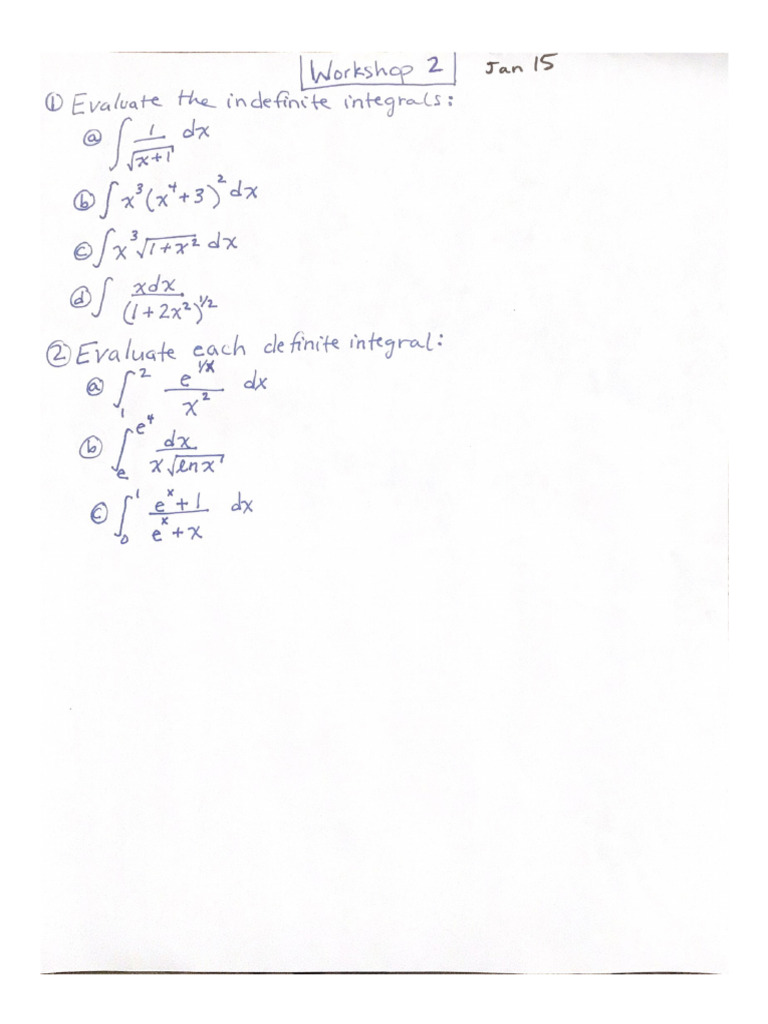 Workshop 2 Jan 15
① Evaluate the indefinite integrals:
ⓐ ∫ 1/√(x+1) dx
ⓑ ∫ x³(x⁴+3)² dx
ⓒ ∫ x³√(1+x²) dx
ⓓ ∫ xdx/(1+2x²)^(1/2)
② Evaluate each definite integral:
ⓐ ∫₁² e^(1/x)/x² dx
ⓑ ∫ₑ^(e⁴) dx/(x√(ln x))
ⓒ ∫₀¹ (eˣ+1)/(eˣ+x) dx